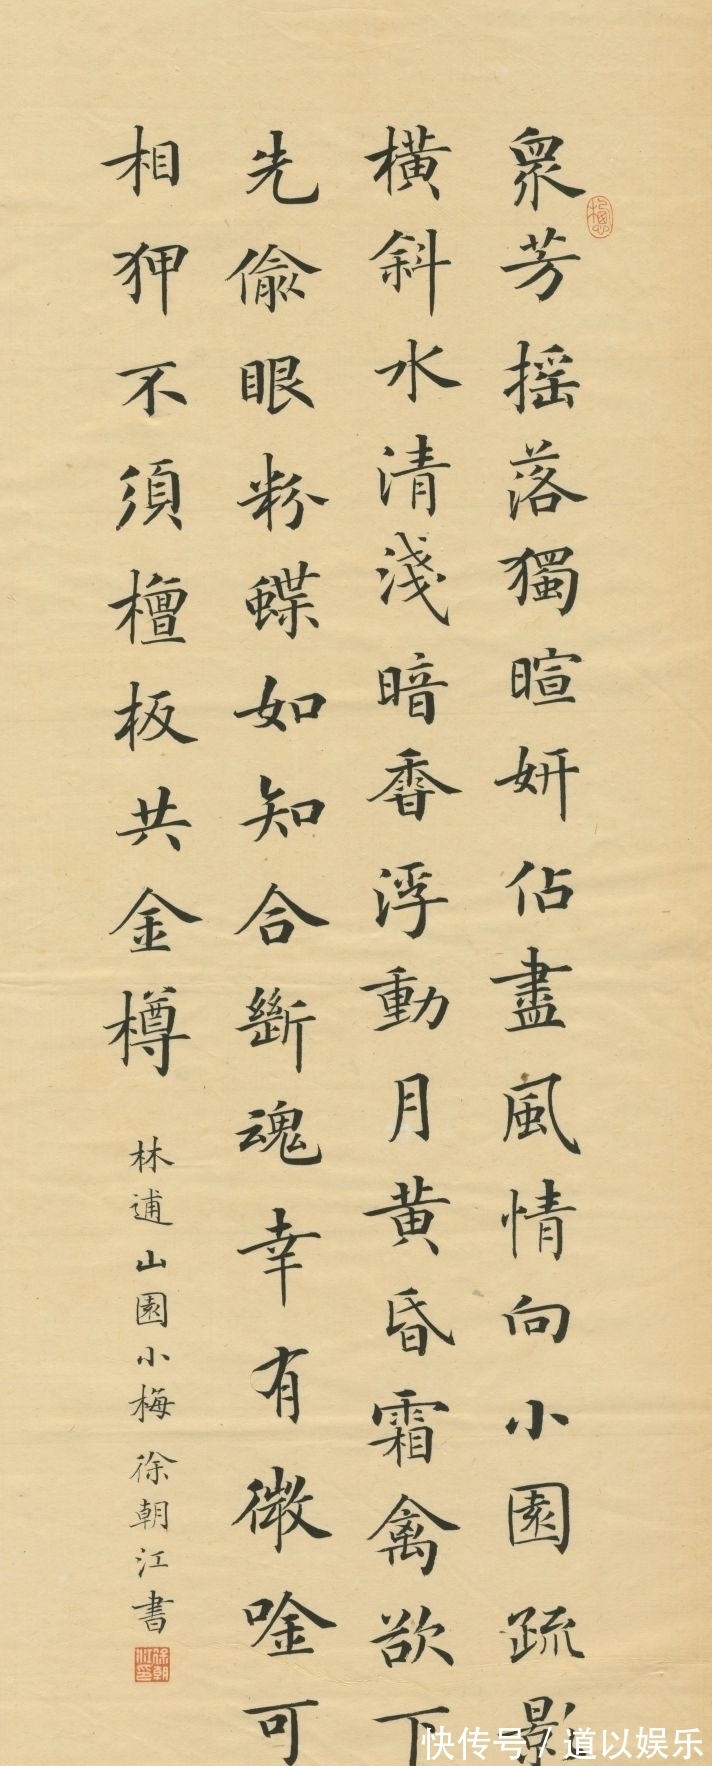 眾芳搖落獨暄妍佔盡風情向小園疏影
橫斜水清淺暗香浮動月黃昏霜禽欲下
先偷眼粉蝶如知合斷魂幸有微唫可
相狎不須檀板共金樽
林逋山園小梅徐朝江書
徐朝江印
快传号/道以娱乐